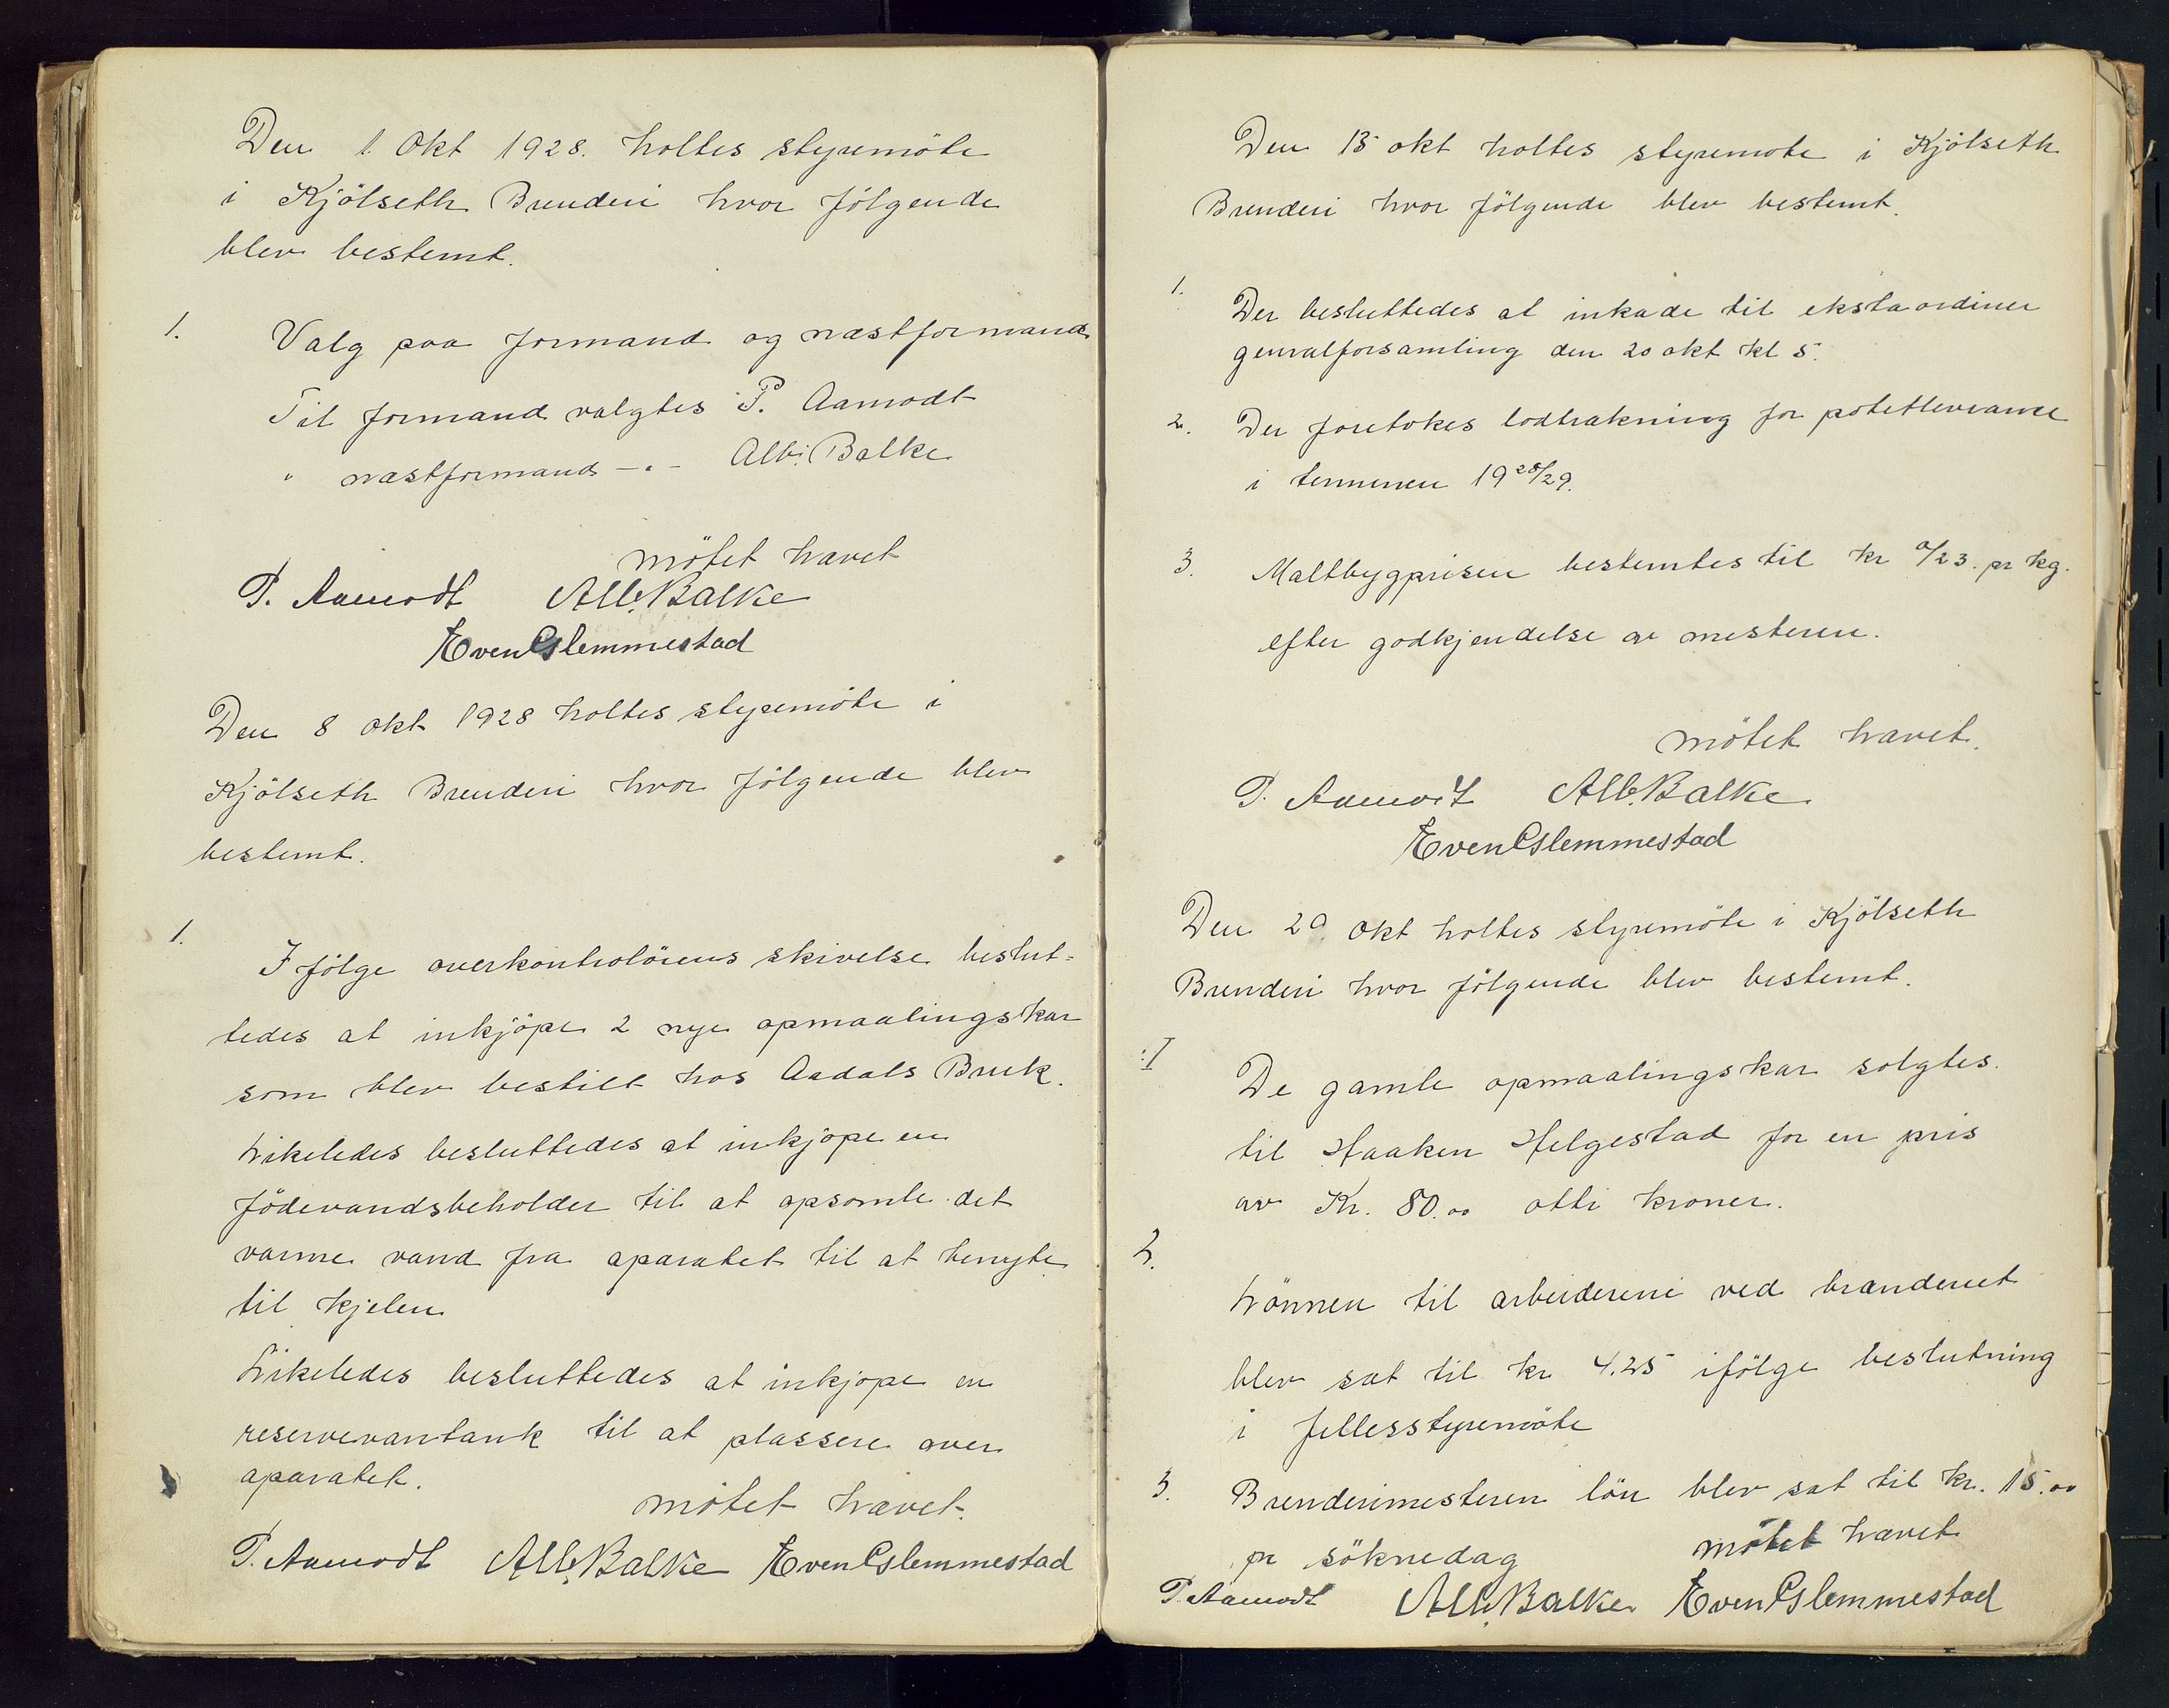 Den 1. Okt 1928. holtes styremöte
i Kjölseth Brenderi hvor følgende
blev bestemt.
1. Valg paa formand og næstformand
Til formand valgtes P. Aamodt
" næstformand -"- Alb. Balke
mötet hævet
P. Aamodt Alb. Balke
Even Gslemmestad
Den 8 okt 1928 holtes styremöte i
Kjölseth Brenderi hvor følgende blev
bestemt.
1. I følge overkontrolörens skivelse beslut-
tedes at inkjöpe 2 nye opmaalingskar
som blev bestilt hos Aadals Bruk.
Likeledes besluttedes at inkjøpe en
födevandsbeholder til at opsamle det
varme vand fra aparatet til at benyte
til kjelen
Likeledes besluttedes at inkjøpe en
reservevantank til at plassere over
aparatet.
mötet hævet.
P. Aamodt Alb. Balke Even Gslemmestad
Den 15 okt holtes styremote i Kjölseth
Brenderi hvor fölgende blev bestemt.
1. Der besluttedes at inkade til ekstaordiner
generalforsamling den 20 okt kl 5.
2. Der foretokes lodtrækning for potetleveranse
i terminen 1928/29.
3. Maltbygprisen bestemtes til kr 0/23. pr kg.
efter godkjendelse av mesteren.
mötet hævet.
P. Aamodt Alb. Balke
Even Gslemmestad
Den 29. Okt holtes styremöte i Kjölseth
Brenderi hvor fölgende blev bestemt.
I De gamle opmaalingskar solgtes
til Haaken Helgestad for en pris
av Kr. 80.00 otti kroner.
2.
Lönnen til arbeiderene ved brænderiet
blev sat til kr 4.25 ifölge beslutning
i fellesstyremöte
3. Brenderimesteren lön blev sat til kr. 15.00
pr söknedag mötet hævet
P. Aamodt Alb. Balke Even Gslemmestad